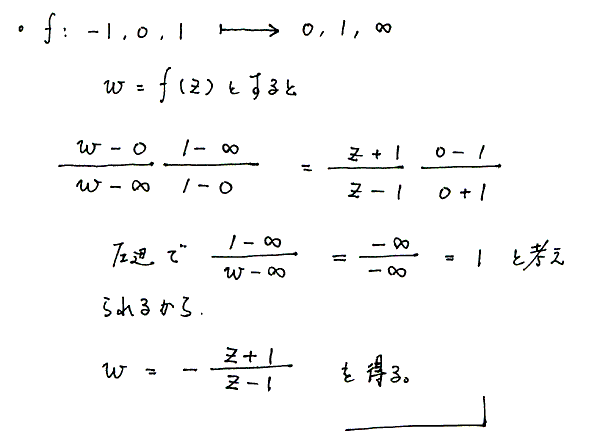 ・ f: -1, 0, 1 ⟼ 0, 1, ∞
w = f(z) とすると
\frac{w-0}{w-∞} \frac{1-∞}{1-0} = \frac{z+1}{z-1} \frac{0-1}{0+1}
左辺で \frac{1-∞}{w-∞} = \frac{-∞}{-∞} = 1 と考え
られるから.
w = - \frac{z+1}{z-1} を得る。